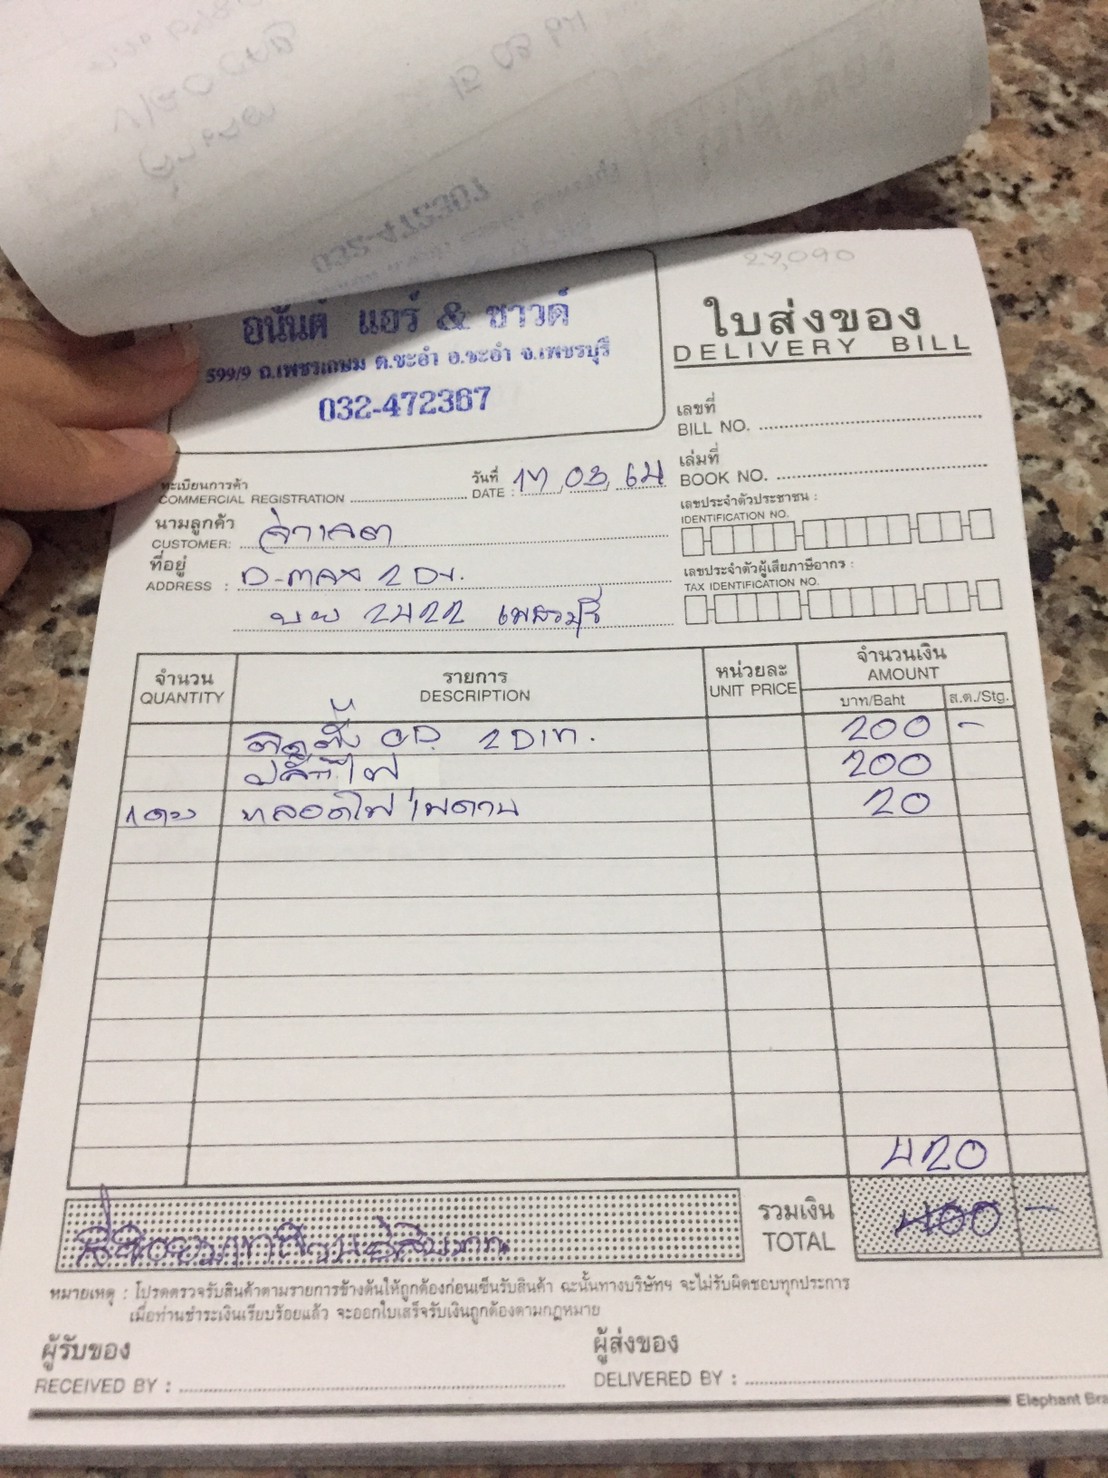 27,090
อนันต์ แอร์ & ซาวด์
599/9 ถ.เพชรเกษม ต.ชะอำ อ.ชะอำ จ.เพชรบุรี
032-472367
ใบส่งของ
DELIVERY BILL
เลขที่
BILL NO.
เล่มที่
BOOK NO.
ทะเบียนการค้า
COMMERCIAL REGISTRATION
วันที่ 17 03 64
DATE :
เลขประจำตัวประชาชน :
IDENTIFICATION NO.
นามลูกค้า
CUSTOMER:
ที่อยู่
ADDRESS : D-max 2 Dr.
2422 เพชรบุรี
เลขประจำตัวผู้เสียภาษีอากร :
TAX IDENTIFICATION NO.
จำนวน
QUANTITY
รายการ
DESCRIPTION
หน่วยละ
UNIT PRICE
จำนวนเงิน
AMOUNT
บาท/Baht
ส.ต./Stg.
ติดตั้ง 2 Din. 200 -
ปลั๊กไฟ 200
1 ดวง หลอดไฟเพดาน 20
420
รวมเงิน 400 -
TOTAL
หมายเหตุ : โปรดตรวจรับสินค้าตามรายการข้างต้นให้ถูกต้องก่อนเซ็นรับสินค้า ฉะนั้นทางบริษัทฯ จะไม่รับผิดชอบทุกประการ
เมื่อท่านชำระเงินเรียบร้อยแล้ว จะออกใบเสร็จรับเงินถูกต้องตามกฎหมาย
ผู้รับของ
RECEIVED BY :
ผู้ส่งของ
DELIVERED BY :
Elephant Bra